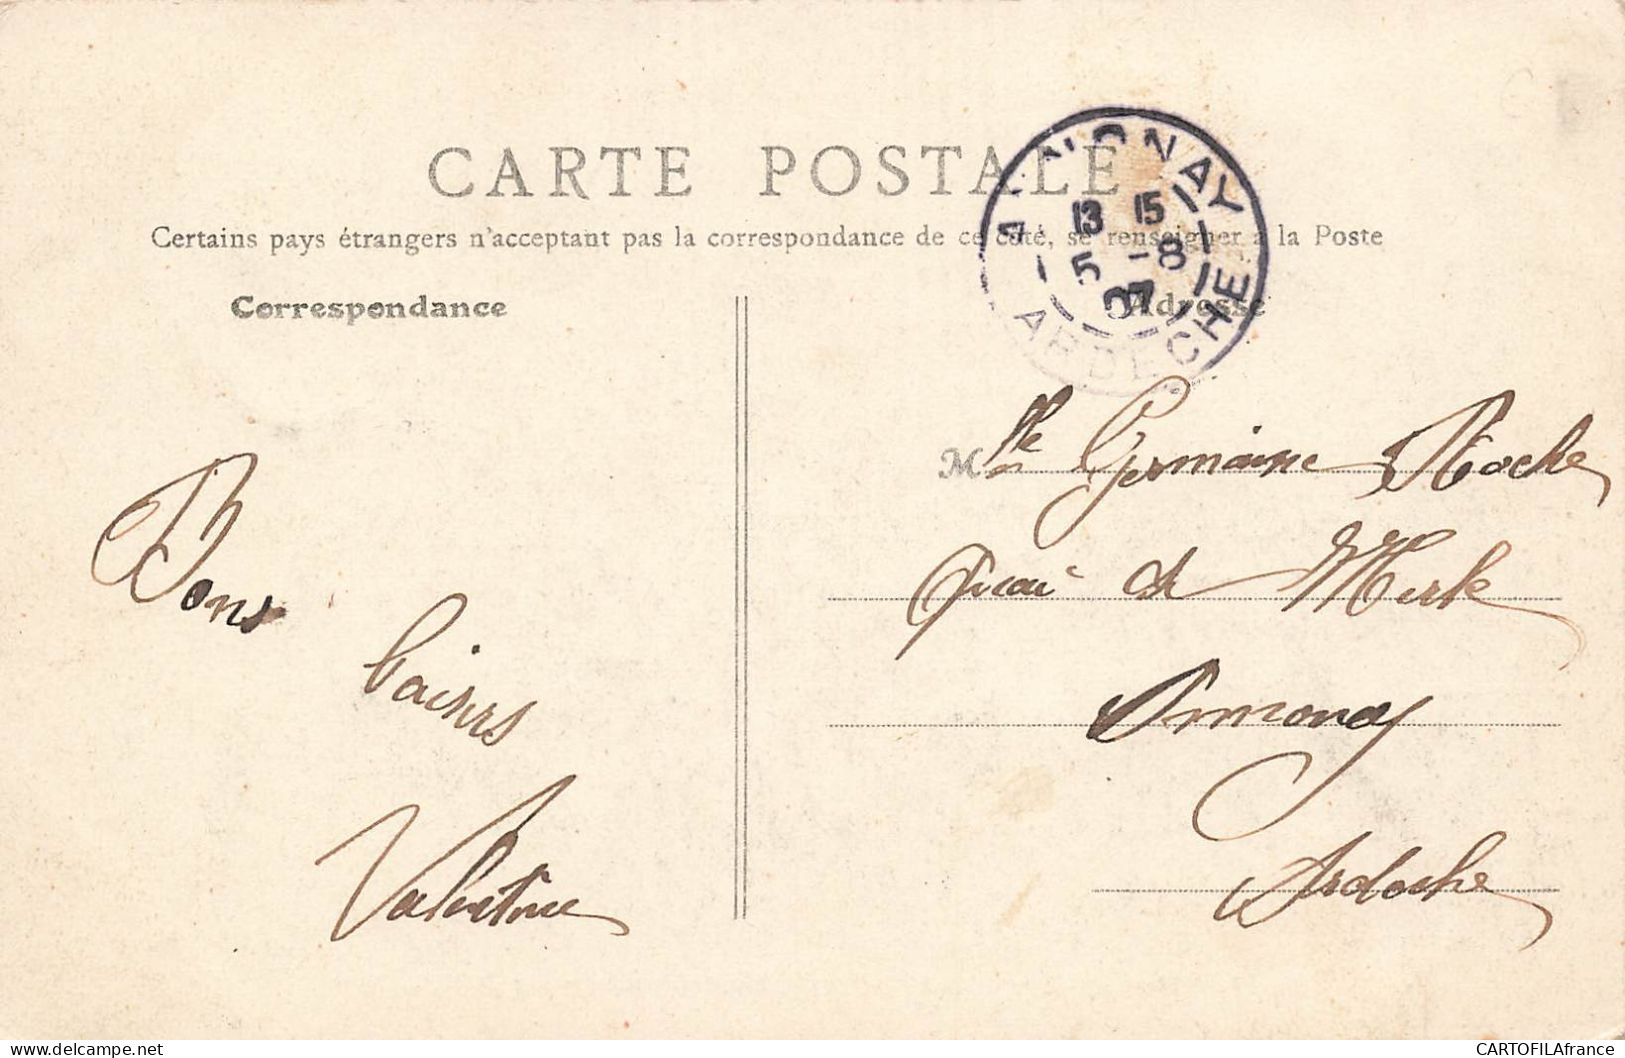 CARTE POSTALE
Certains pays étrangers n'acceptent pas la correspondance de ce côté, se renseigner à la Poste
Correspondance
Adresse
ANNONAY
13 15
5 -8
07
ARDECHE
Bons
baisers
Valentine
Mlle Germaine Roche
Quai de Merle
Annonay
Ardèche
CARTOFILAfrance